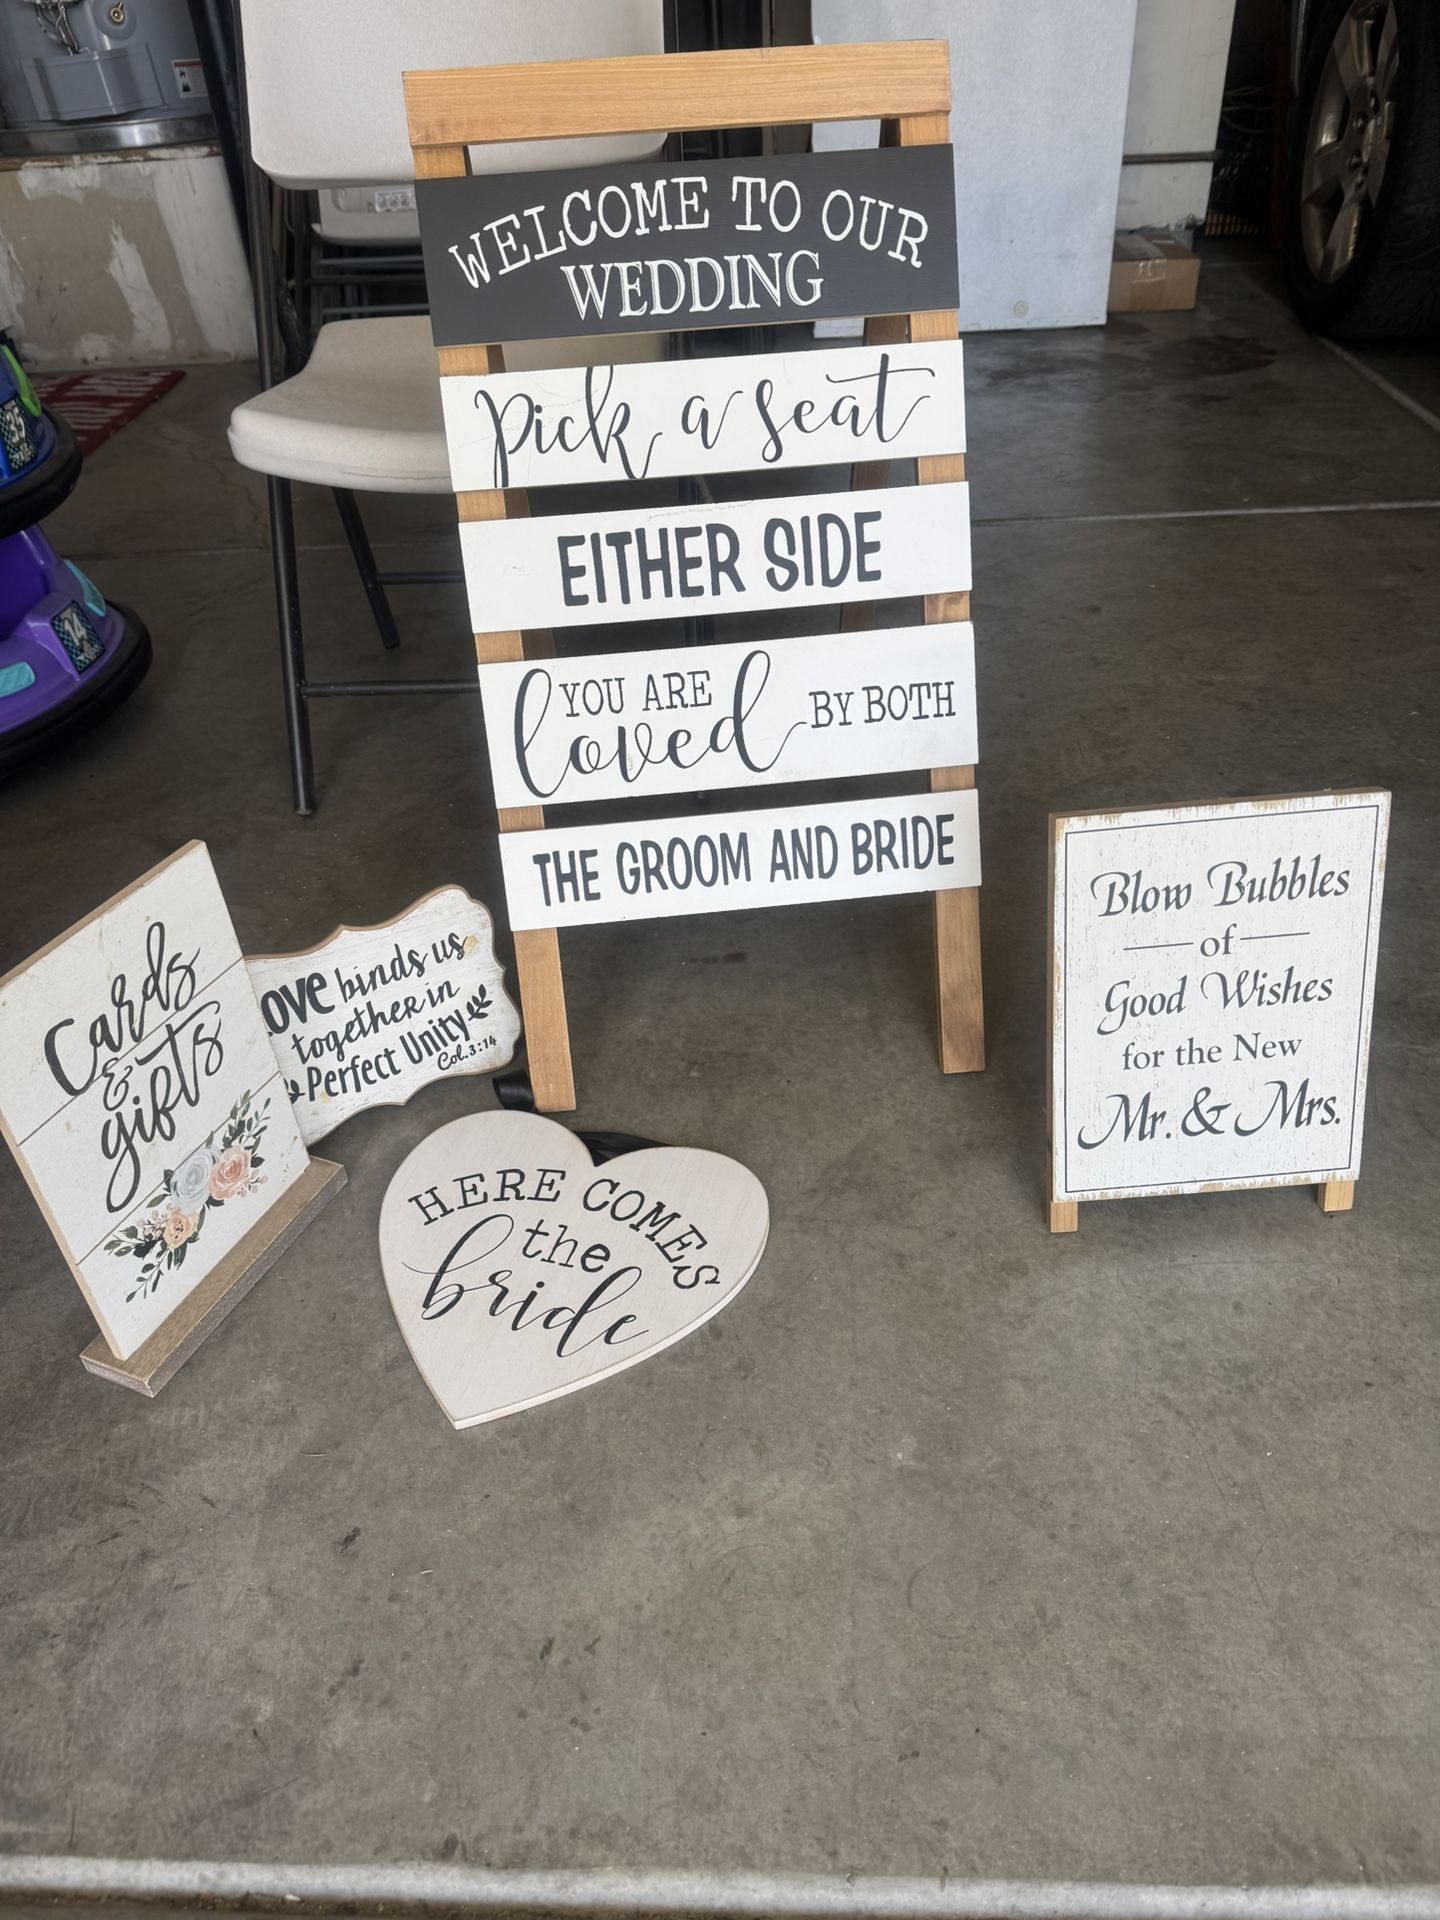 WELCOME TO OUR
WEDDING
Pick a seat
EITHER SIDE
YOU ARE
loved BY BOTH
THE GROOM AND BRIDE
Cards
&
gifts
Love binds us
together in
Perfect Unity
Col. 3:14
HERE COMES
the
bride
Blow Bubbles
of
Good Wishes
for the New
Mr. & Mrs.
35
14